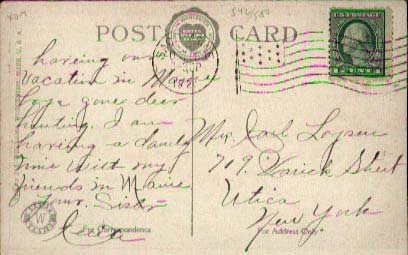 POST CARD
having our
vacation in Maine
boys gone deer
hunting. I am
having a dandy
time with my
friends in Maine
your Sister
Mrs. Earl
709 Varick Street
Utica
New York
For Correspondence
For Address Only